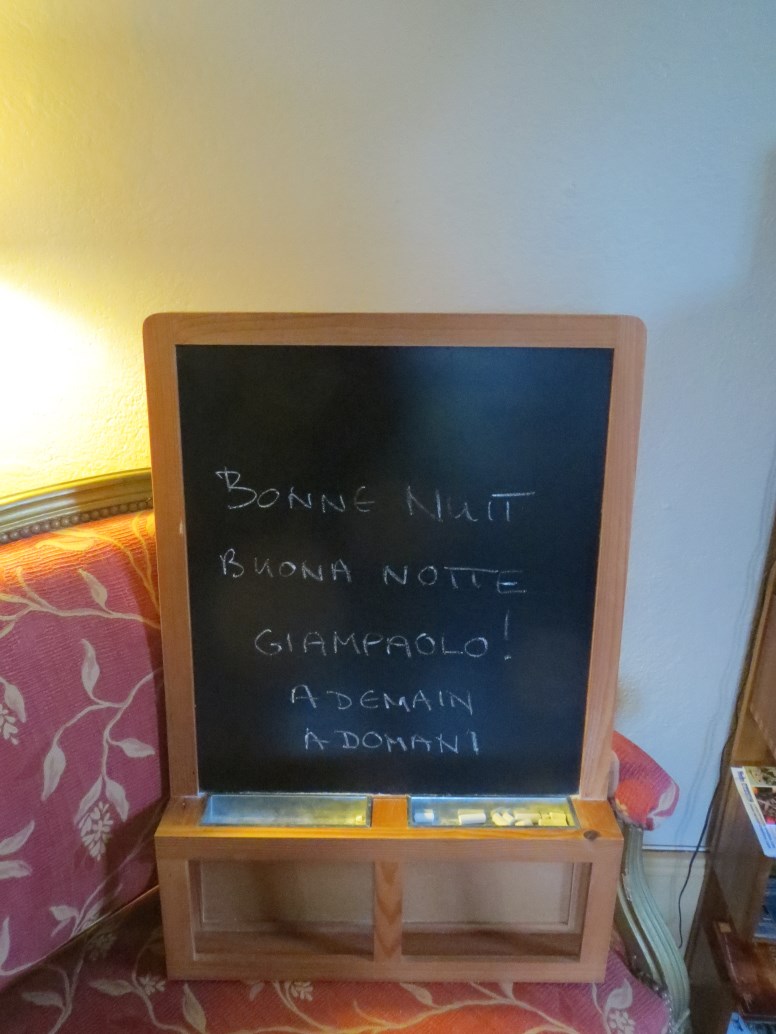 BONNE NUIT
BUONA NOTTE
GIAMPAOLO!
A DEMAIN
A DOMANI